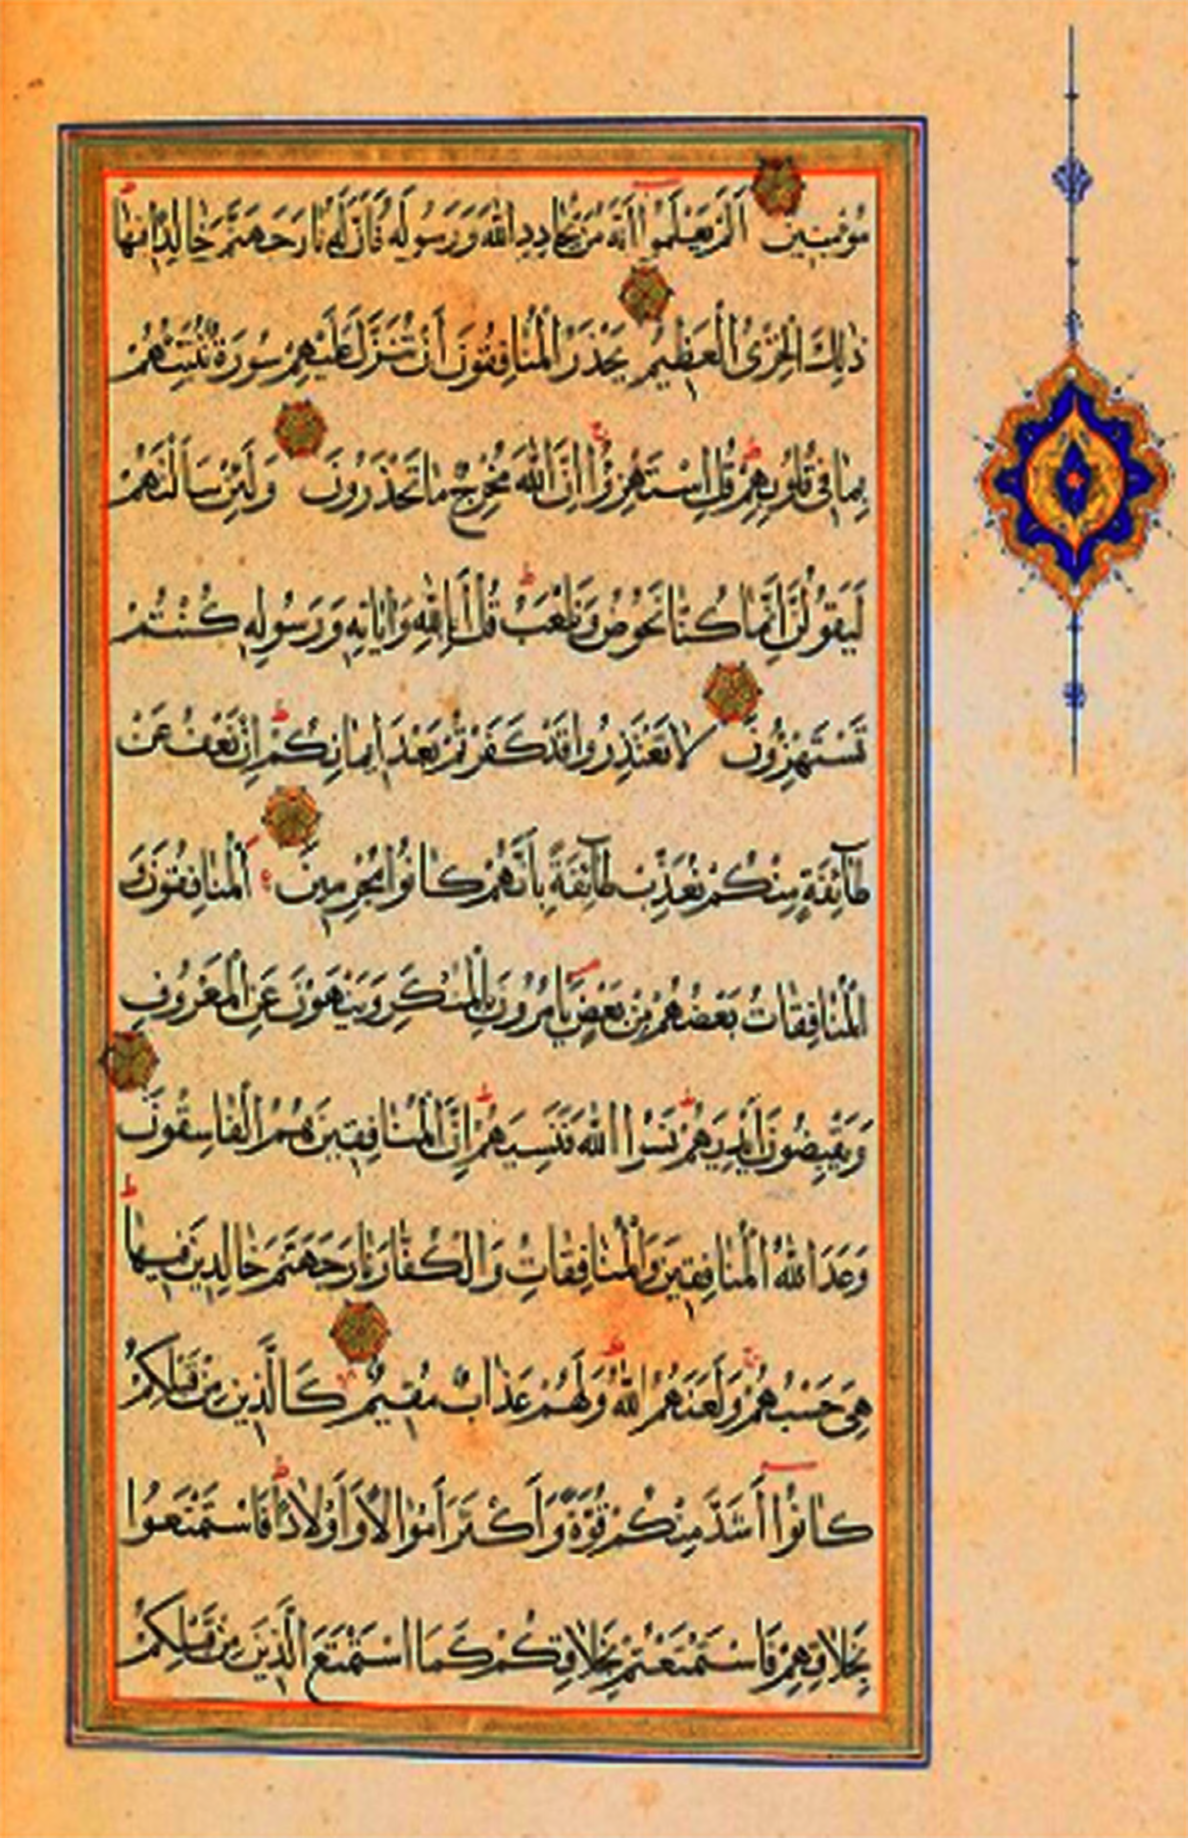 مُؤْمِنِينَ أَلَمْ يَعْلَمُوا أَنَّهُ مَنْ يُحَادِدِ اللّٰهَ وَرَسُولَهُ فَأَنَّ لَهُ نَارَ جَهَنَّمَ خَالِدًا فِيهَا
ذٰلِكَ الْخِزْيُ الْعَظِيمُ يَحْذَرُ الْمُنَافِقُونَ أَنْ تُنَزَّلَ عَلَيْهِمْ سُورَةٌ تُنَبِّئُهُمْ
بِمَا فِي قُلُوبِهِمْ قُلِ اسْتَهْزِؤُا إِنَّ اللّٰهَ مُخْرِجٌ مَا تَحْذَرُونَ وَلَئِنْ سَأَلْتَهُمْ
لَيَقُولُنَّ إِنَّمَا كُنَّا نَخُوضُ وَنَلْعَبُ قُلْ أَبِاللّٰهِ وَاٰيَاتِهِ وَرَسُولِهِ كُنْتُمْ
تَسْتَهْزِؤُنَ لَا تَعْتَذِرُوا قَدْ كَفَرْتُمْ بَعْدَ إِيمَانِكُمْ إِنْ نَعْفُ عَنْ
طَآئِفَةٍ مِنْكُمْ نُعَذِّبْ طَآئِفَةً بِأَنَّهُمْ كَانُوا مُجْرِمِينَ أَلْمُنَافِقُونَ وَ
الْمُنَافِقَاتُ بَعْضُهُمْ مِنْ بَعْضٍ يَأْمُرُونَ بِالْمُنْكَرِ وَيَنْهَوْنَ عَنِ الْمَعْرُوفِ
وَيَقْبِضُونَ أَيْدِيَهُمْ نَسُوا اللّٰهَ فَنَسِيَهُمْ إِنَّ الْمُنَافِقِينَ هُمُ الْفَاسِقُونَ
وَعَدَ اللّٰهُ الْمُنَافِقِينَ وَالْمُنَافِقَاتِ وَالْكُفَّارَ نَارَ جَهَنَّمَ خَالِدِينَ فِيهَا
هِيَ حَسْبُهُمْ وَلَعَنَهُمُ اللّٰهُ وَلَهُمْ عَذَابٌ مُقِيمٌ كَالَّذِينَ مِنْ قَبْلِكُمْ
كَانُوا أَشَدَّ مِنْكُمْ قُوَّةً وَأَكْثَرَ أَمْوَالًا وَأَوْلَادًا فَاسْتَمْتَعُوا
بِخَلَاقِهِمْ فَاسْتَمْتَعْتُمْ بِخَلَاقِكُمْ كَمَا اسْتَمْتَعَ الَّذِينَ مِنْ قَبْلِكُمْ